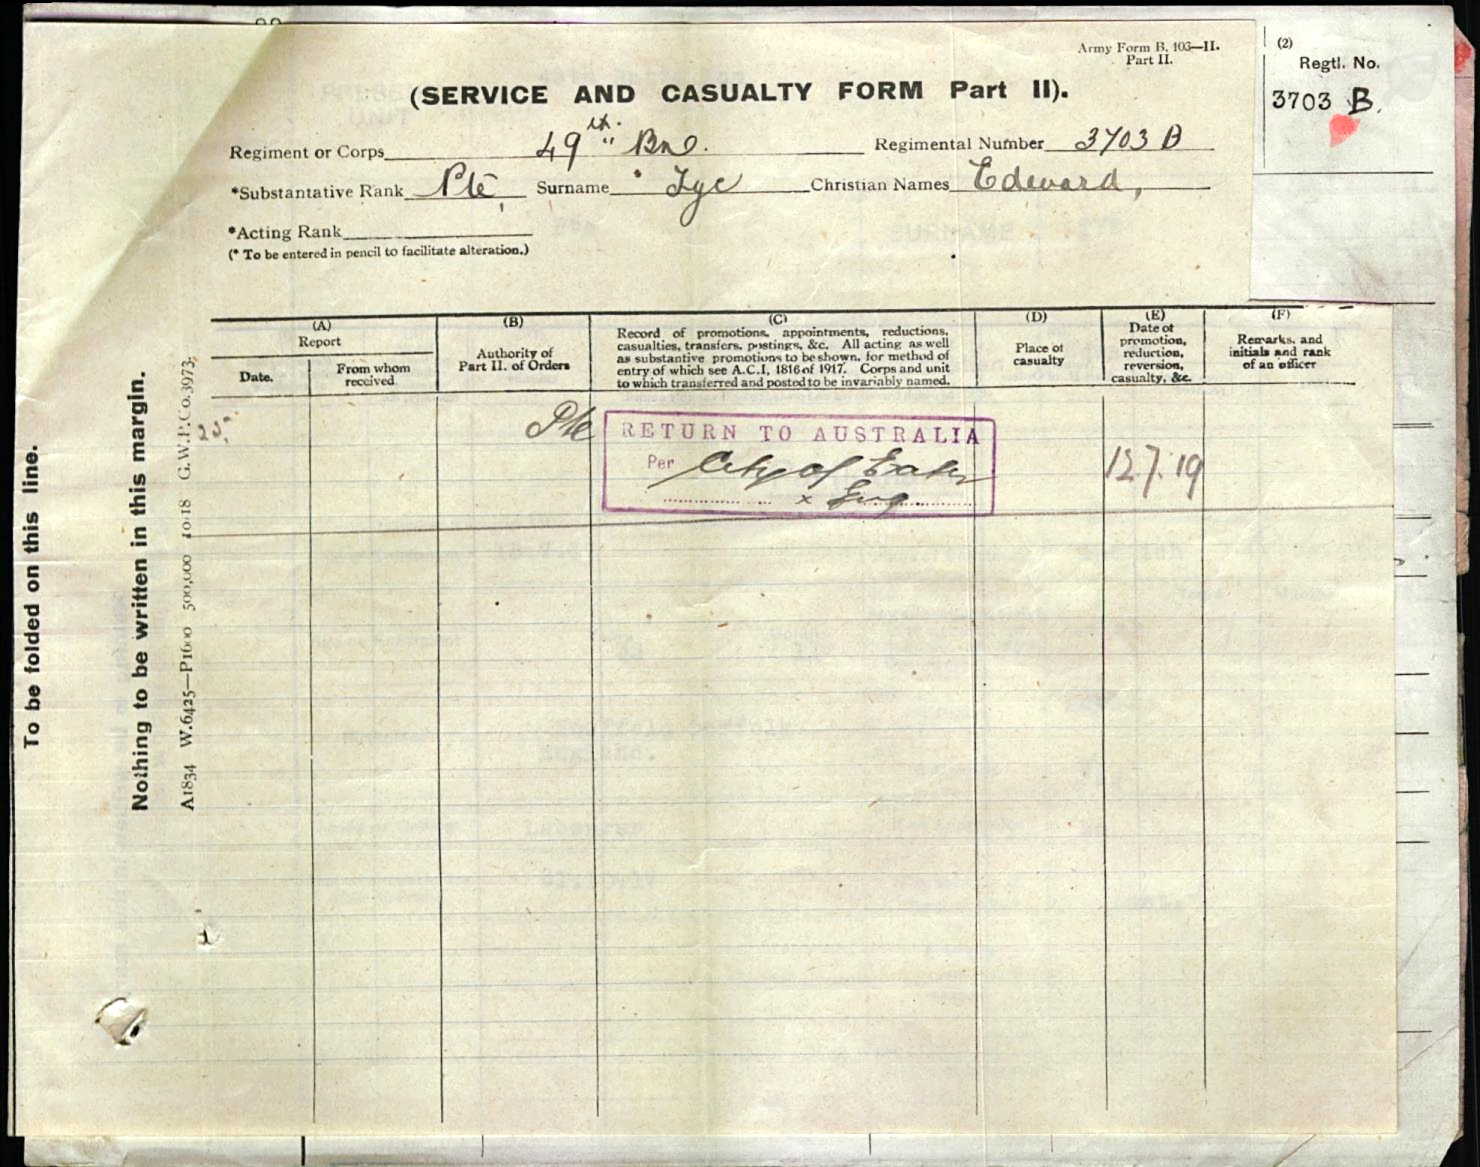 Army Form B. 103—II.
Part II.
(2)
Regtl. No.
3703 B.
(SERVICE AND CASUALTY FORM Part II).
Regiment or Corps 49th Bn.
Regimental Number 3703 B
*Substantative Rank Pte, Surname Tye Christian Names Edward,
*Acting Rank
(* To be entered in pencil to facilitate alteration.)
(A)
Report
Date.
From whom
received
(B)
Authority of
Part II. of Orders
(C)
Record of promotions, appointments, reductions,
casualties, transfers, postings, &c. All acting as well
as substantive promotions to be shown, for method of
entry of which see A.C.I, 1816 of 1917. Corps and unit
to which transferred and posted to be invariably named.
(D)
Place of
casualty
(E)
Date of
promotion,
reduction,
reversion,
casualty, &c.
(F)
Remarks, and
initials and rank
of an officer
Pte
RETURN TO AUSTRALIA
Per City of Exeter
x Eng
12.7.19
To be folded on this line.
Nothing to be written in this margin.
A1834 W.6425—P1600 500,000 10·18 G.W.P.Co.3973.